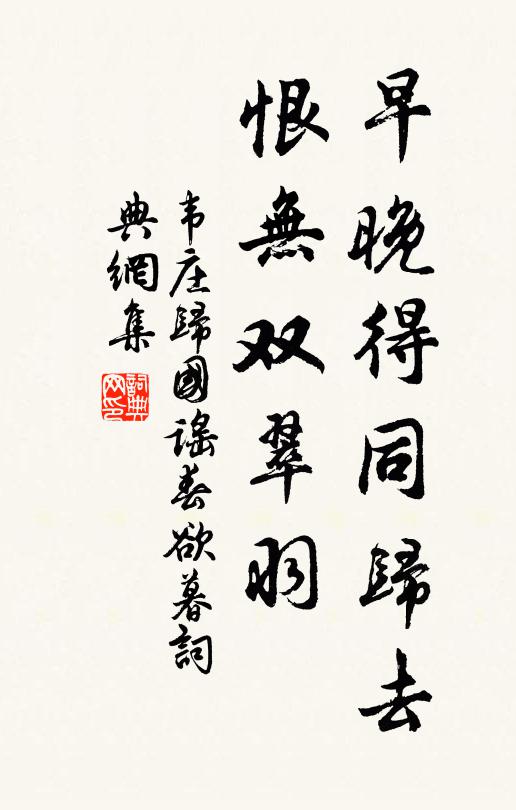 早晚得同歸去
恨無双翠羽
韦庄歸國謠春欲暮詞
典網集
詞典网印